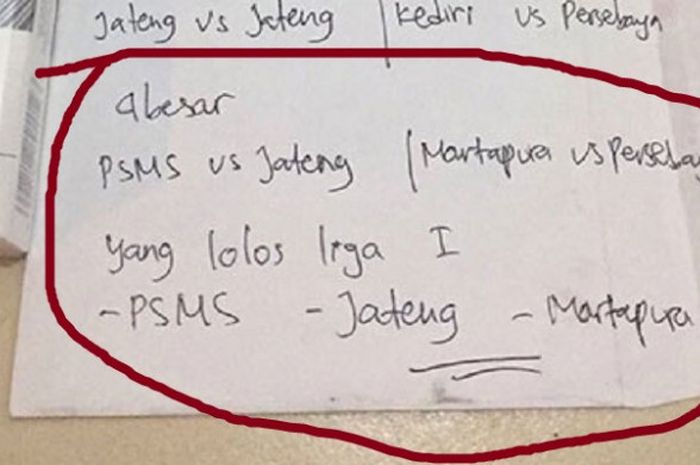 Jateng vs Jateng | Kediri vs Persebaya
4besar
PSMS vs Jateng | Martapura vs Perseba
yang lolos liga I
- PSMS - Jateng - Martapura